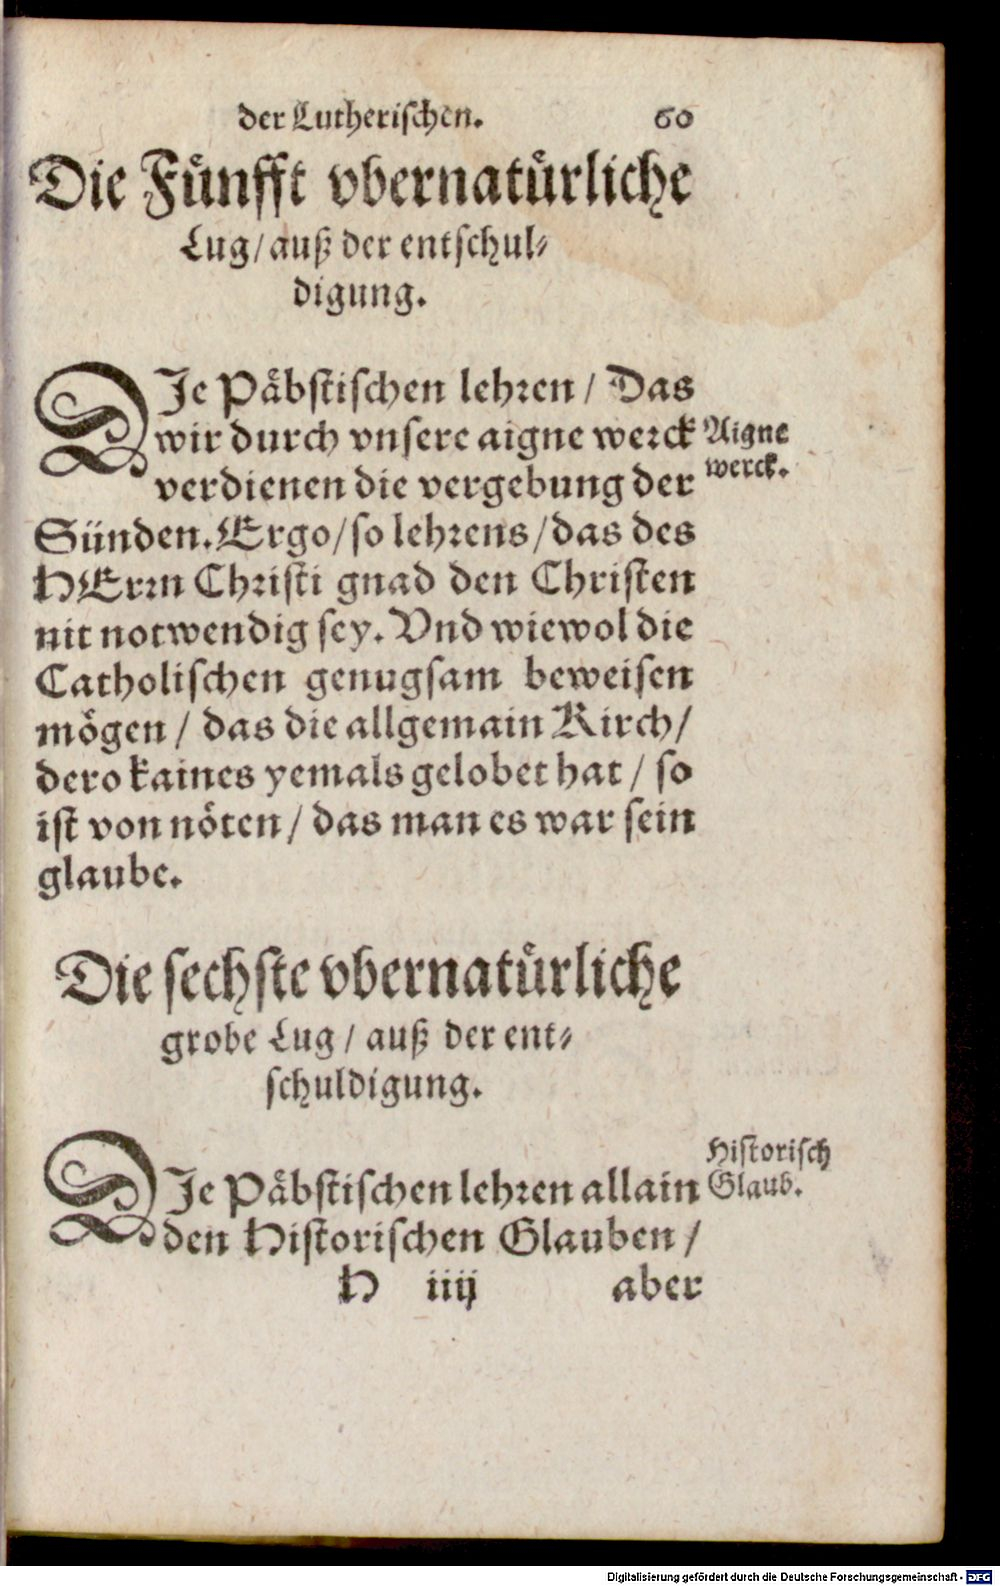 der Lutherischen. 60
Die Fünfft vbernatürliche
Lug/ auß der entschul⸗
digung.
DJe Päbstischen lehren / Das
wir durch vnsere aigne werck
Aigne
werck.
verdienen die vergebung der
Sünden. Ergo/ so lehrens / das des
HErrn Christi gnad den Christen
nit notwendig sey. Vnd wiewol die
Catholischen genugsam beweisen
mögen / das die allgemain Kirch/
dero kaines yemals gelobet hat / so
ist von nöten / das man es war sein
glaube.
Die sechste vbernatürliche
grobe Lug / auß der ent⸗
schuldigung.
DJe Päbstischen lehren allain
Historisch
Glaub.
den Historischen Glauben /
H iiij aber
Digitalisierung gefördert durch die Deutsche Forschungsgemeinschaft - DFG